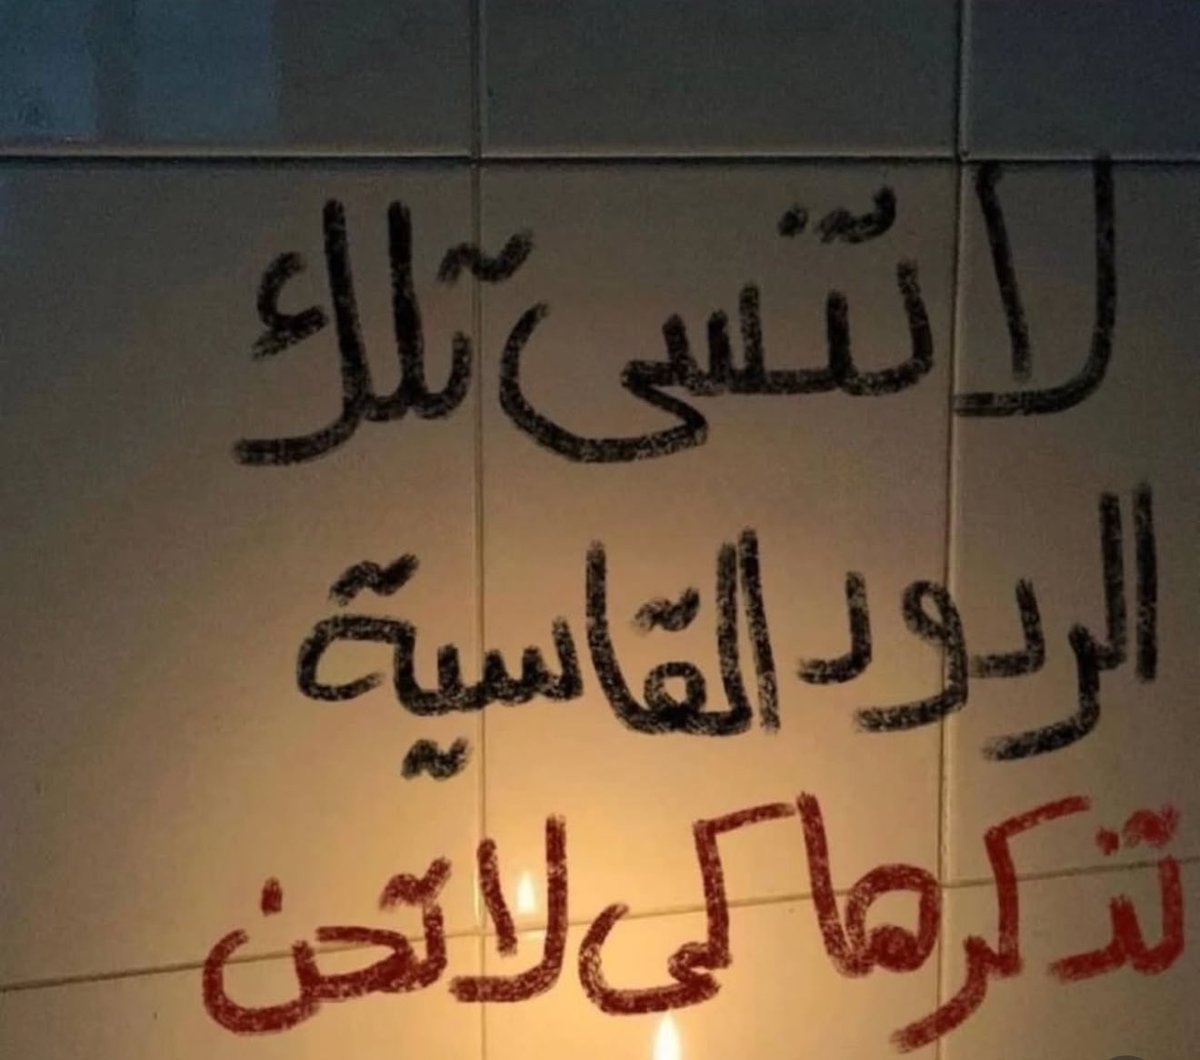 لا تنسى تلك
الردود القاسية
تذكرها كى لا تحن